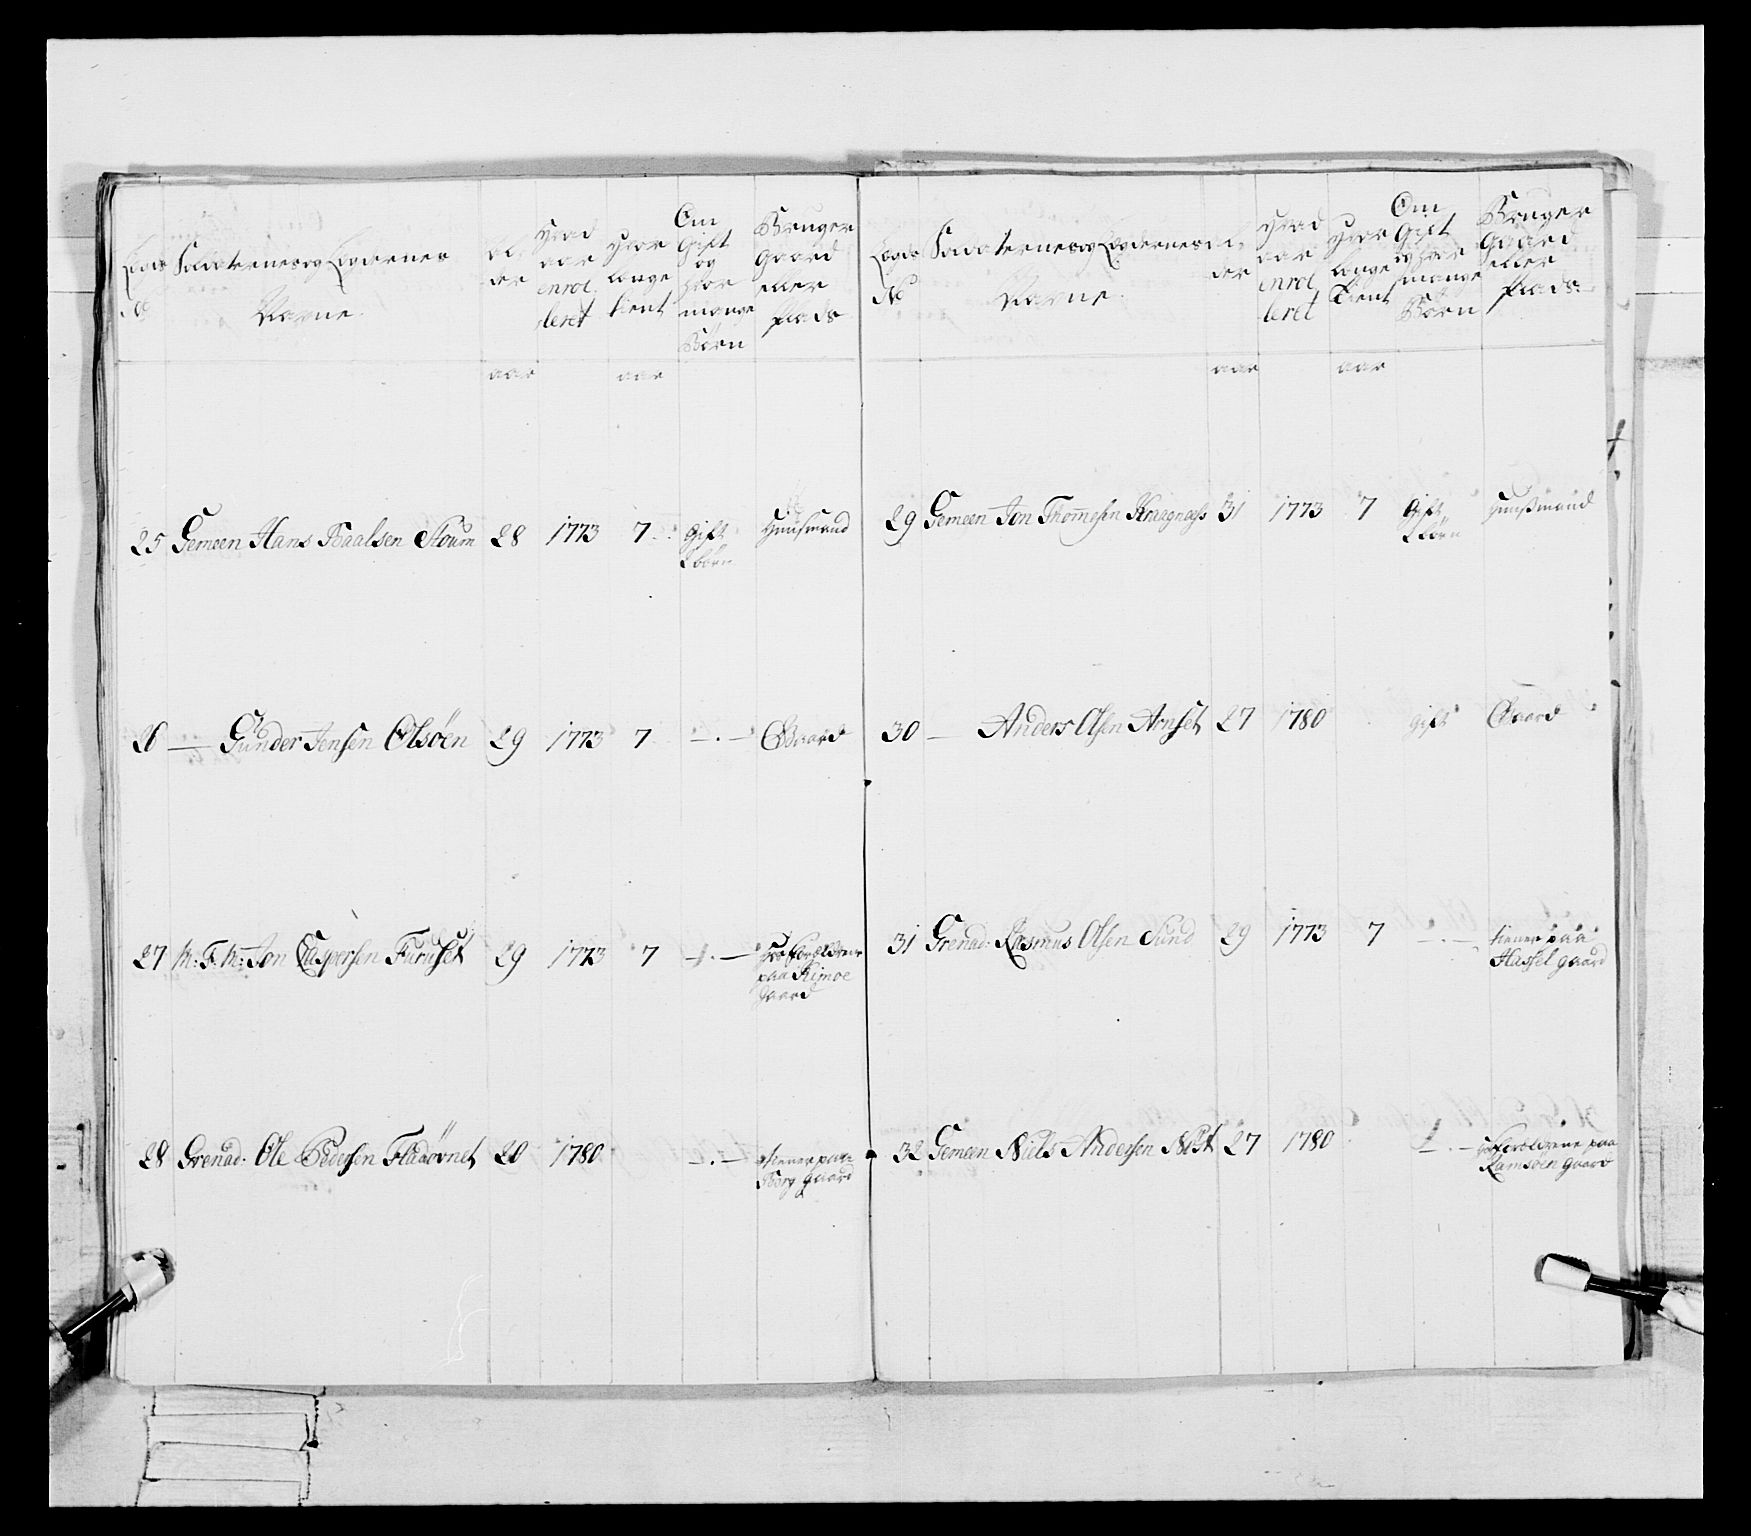 Legds No
Soldaternes og Legdernes
Navne
Al
der
Hvad
aar
enrol
leret
Hvor
længe
tient
Om
Gift
og
hvor
mange
Børn
Bruger
Gaard
eller
Plads
aar
aar
25 Gemeen Hans Paalsen Stoum 28 1773 7 Gift Huusmand
2 børn
26 — Gunder Jensen Olsøen 29 1773 7 — . — Gaard
27 K: F: K: Jon Caspersen Furuset 29 1773 7 — . — hos Forældrene
paa Rimoe
gaard
28 Grenad: Ole Pedersen Fladøvnet 20 1780 — . — tiener paa
Borg gaard
Legds
No
Soldaternes og Legdernes
Navne
Al
der
Hvad
aar
enrol
leret
Hvor
længe
tient
Om
Gift
og hvor
mange
Børn
Bruger
Gaard
eller
Plads
aar
aar
29 Gemeen Jon Thomesen Kraagnæss 31 1773 7 Gift Huusmand
2 børn
30 — Anders Olsen Arnset 27 1780 gift Gaard
31 Grenad: Rasmus Olsen Sund 29 1773 7 — . — tiener paa
Hassel gaard
32 Gemeen Niels Andersen 27 1780 — . — hos Forældrene paa
Ramsøen gaard